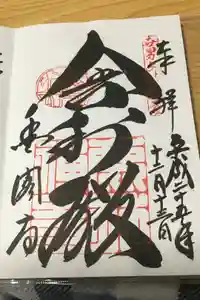 奉拝
平成二十五年
十二月十三日
舎利殿
金閣寺